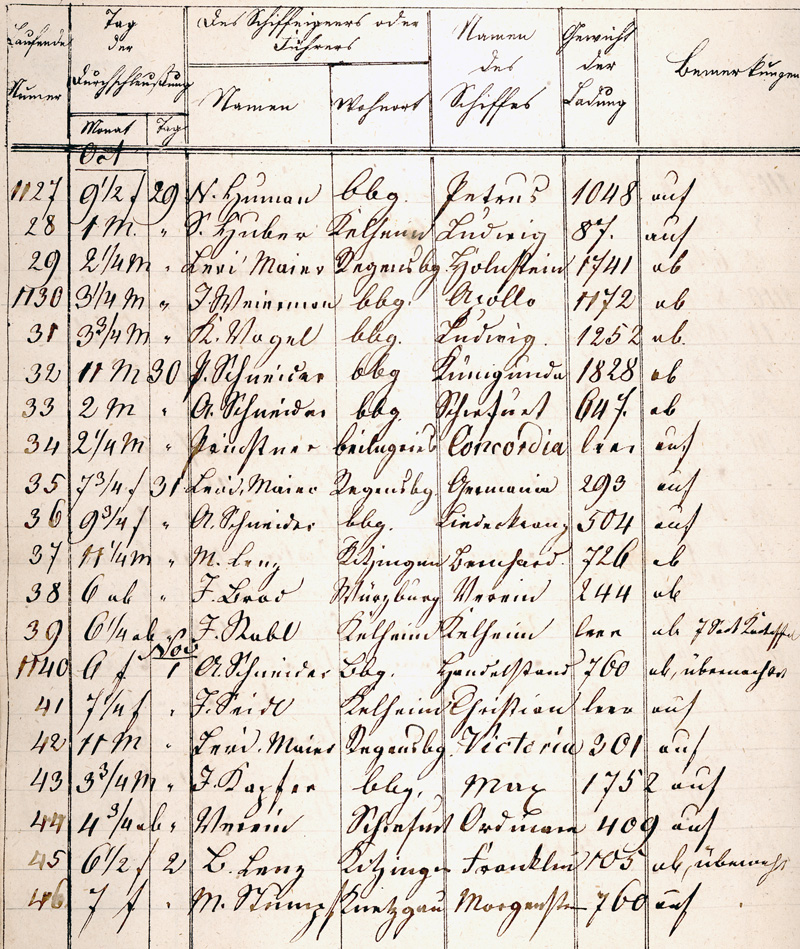 Laufende Numer | Tag der Durchschleußung | Des Schiffeigners oder Führers | Namen des Schiffes | Gewicht der Ladung | Bemerkungen
Monat | Tag | Namen | Wohnort
Oct
1127 9 1/2 f 29 N. Human bbg. Petrus 1048 auf
28 1 M " S. Huber Kelheim Ludwig 87. auf
29 2 1/4 M " Levi Maier Regensbg. Holnstein 1741 ab
1130 3 1/4 M " J. Weierman bbg. Apollo 1172 ab
31 3 3/4 M " K. Vogel bbg. Ludwig. 1252 ab.
32 11 M 30 P. Schneider bbg Künigunda 1828 ab
33 2 M " A. Schneider bbg. Schefurt 647. ab
34 2 1/4 M " beilngries Concordia leer auf
35 7 3/4 f 31 Leid. Maier Regensbg. Germania 293 auf
36 9 3/4 f " A. Schneider bbg. Liederkranz 504 auf
37 11 1/4 M " M. Lenz Kitzingen Bernhard. 726 ab
38 6 ab " J. Brod Würzburg Verein 244 ab
39 6 1/4 ab " J. Kelheim Kelheim leer ab 7
Nov
1140 6 f 1 A. Schneider Bbg. Handelstand 760 ab, übernachtet
41 7 1/4 f " J. Seidl Kelheim Christian leer auf
42 11 M " Leid. Maier Regensbg. Victoria 301 auf
43 3 3/4 M " J. Kapfer bbg. Max 1752 auf
44 4 3/4 ab " Verein Schefurt Ordinare 409 auf
45 6 1/2 f 2 B. Lenz Kitzingen Franklin 105 ab, übernacht
46 7 f " M. Stumpf Knetzgau Morgenste 760 auf